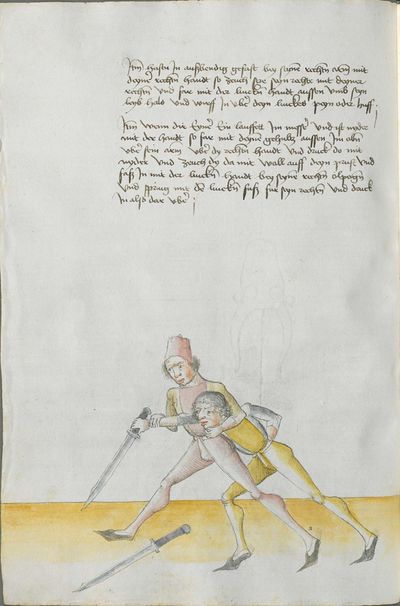 Itm hastu In auswendig gefast bey seinem rechten arm mit
deiner rechten handt so zeuch sere sein rechte mit deyner
rechten und far mit der lincken handt aussen umb seyn
leyb hals und wirff In uber deyn linckes peyn oder huff
Itm wenn dir Eyner Ein laufft Im messer und ist nyder
mit der handt so far mit deynem gehultz aussen In oben
uber sein arm uber dy rechten handt und druck do mit
nyder und zeuch dy da mit wall auff deyn prust und
faß In mit der lincken handt bey seyner rechten elpogen
und spring mit dem lincken fuß fur seyn rechten und druck
In also dar uber